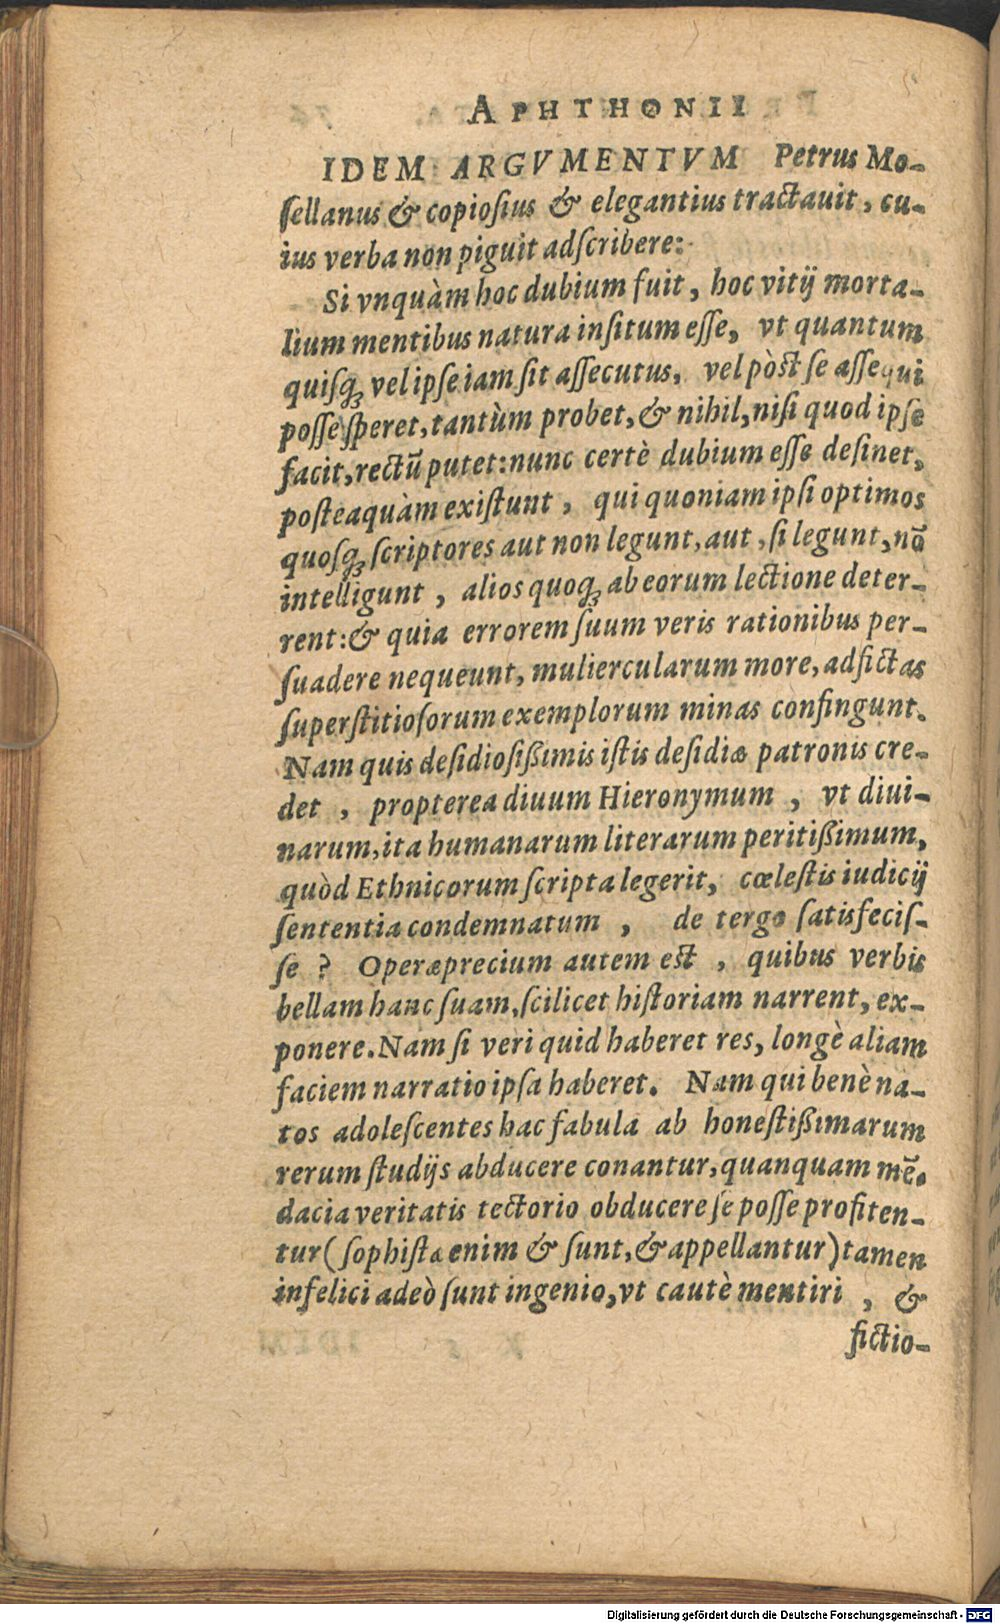 APHTHONII
IDEM ARGVMENTVM Petrus Mo-
ſellanus & copioſius & elegantius tractauit, cu-
ius verba non piguit adſcribere:
Si vnquàm hoc dubium fuit, hoc vitij morta-
lium mentibus natura inſitum eſſe, vt quantum
quiſqꝫ vel ipſe iam ſit aſſecutus, vel pòſt ſe aſſequi
poſſe ſperet, tantùm probet, & nihil, niſi quod ipſe
facit, rectū putet: nunc certè dubium eſſe deſinet,
poſteaquàm exiſtunt, qui quoniam ipſi optimos
quoſqꝫ ſcriptores aut non legunt, aut, ſi legunt, nō
intelligunt, alios quoqꝫ ab eorum lectione deter-
rent: & quia errorem ſuum veris rationibus per-
ſuadere nequeunt, muliercularum more, adfictas
ſuperſtitioſorum exemplorum minas confingunt.
Nam quis deſidioſißimis iſtis deſidiæ patronis cre-
det, propterea diuum Hieronymum, vt diui-
narum, ita humanarum literarum peritißimum,
quòd Ethnicorum ſcripta legerit, cœleſtis iudicij
ſententia condemnatum, de tergo ſatisfeciſ-
ſe? Operæprecium autem eſt, quibus verbis
bellam hanc ſuam, ſcilicet hiſtoriam narrent, ex-
ponere. Nam ſi veri quid haberet res, longè aliam
faciem narratio ipſa haberet. Nam qui benè na-
tos adoleſcentes hac fabula ab honeſtißimarum
rerum ſtudijs abducere conantur, quanquam mē-
dacia veritatis tectorio obducere ſe poſſe profiten-
tur (ſophiſtæ enim & ſunt, & appellantur) tamen
infelici adeò ſunt ingenio, vt cautè mentiri, &
fictio-
Digitalisierung gefördert durch die Deutsche Forschungsgemeinschaft - DFG